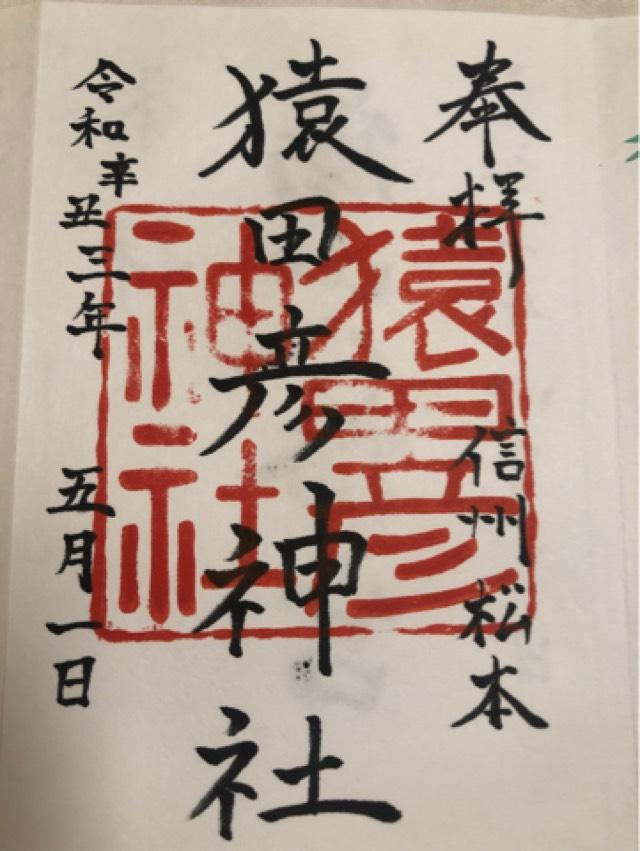 奉拝
信州松本
猿田彦神社
令和辛丑三年
五月一日
猿田彦
神社